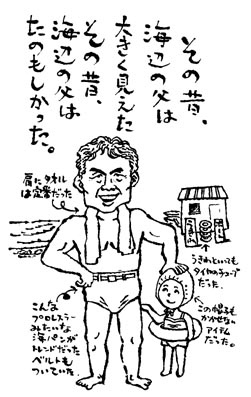 その昔、
海辺の父は
大きく見えた
その昔、
海辺の父は
たのもしかった。
肩にタオル
は定番だった
うきわといっても
タイヤのチューブ
だった。
この帽子も
かかせない
アイテム
だった。
こんな
プロレスラー
みたいな
海パンが
トレンドだった
ベルトも
ついていた